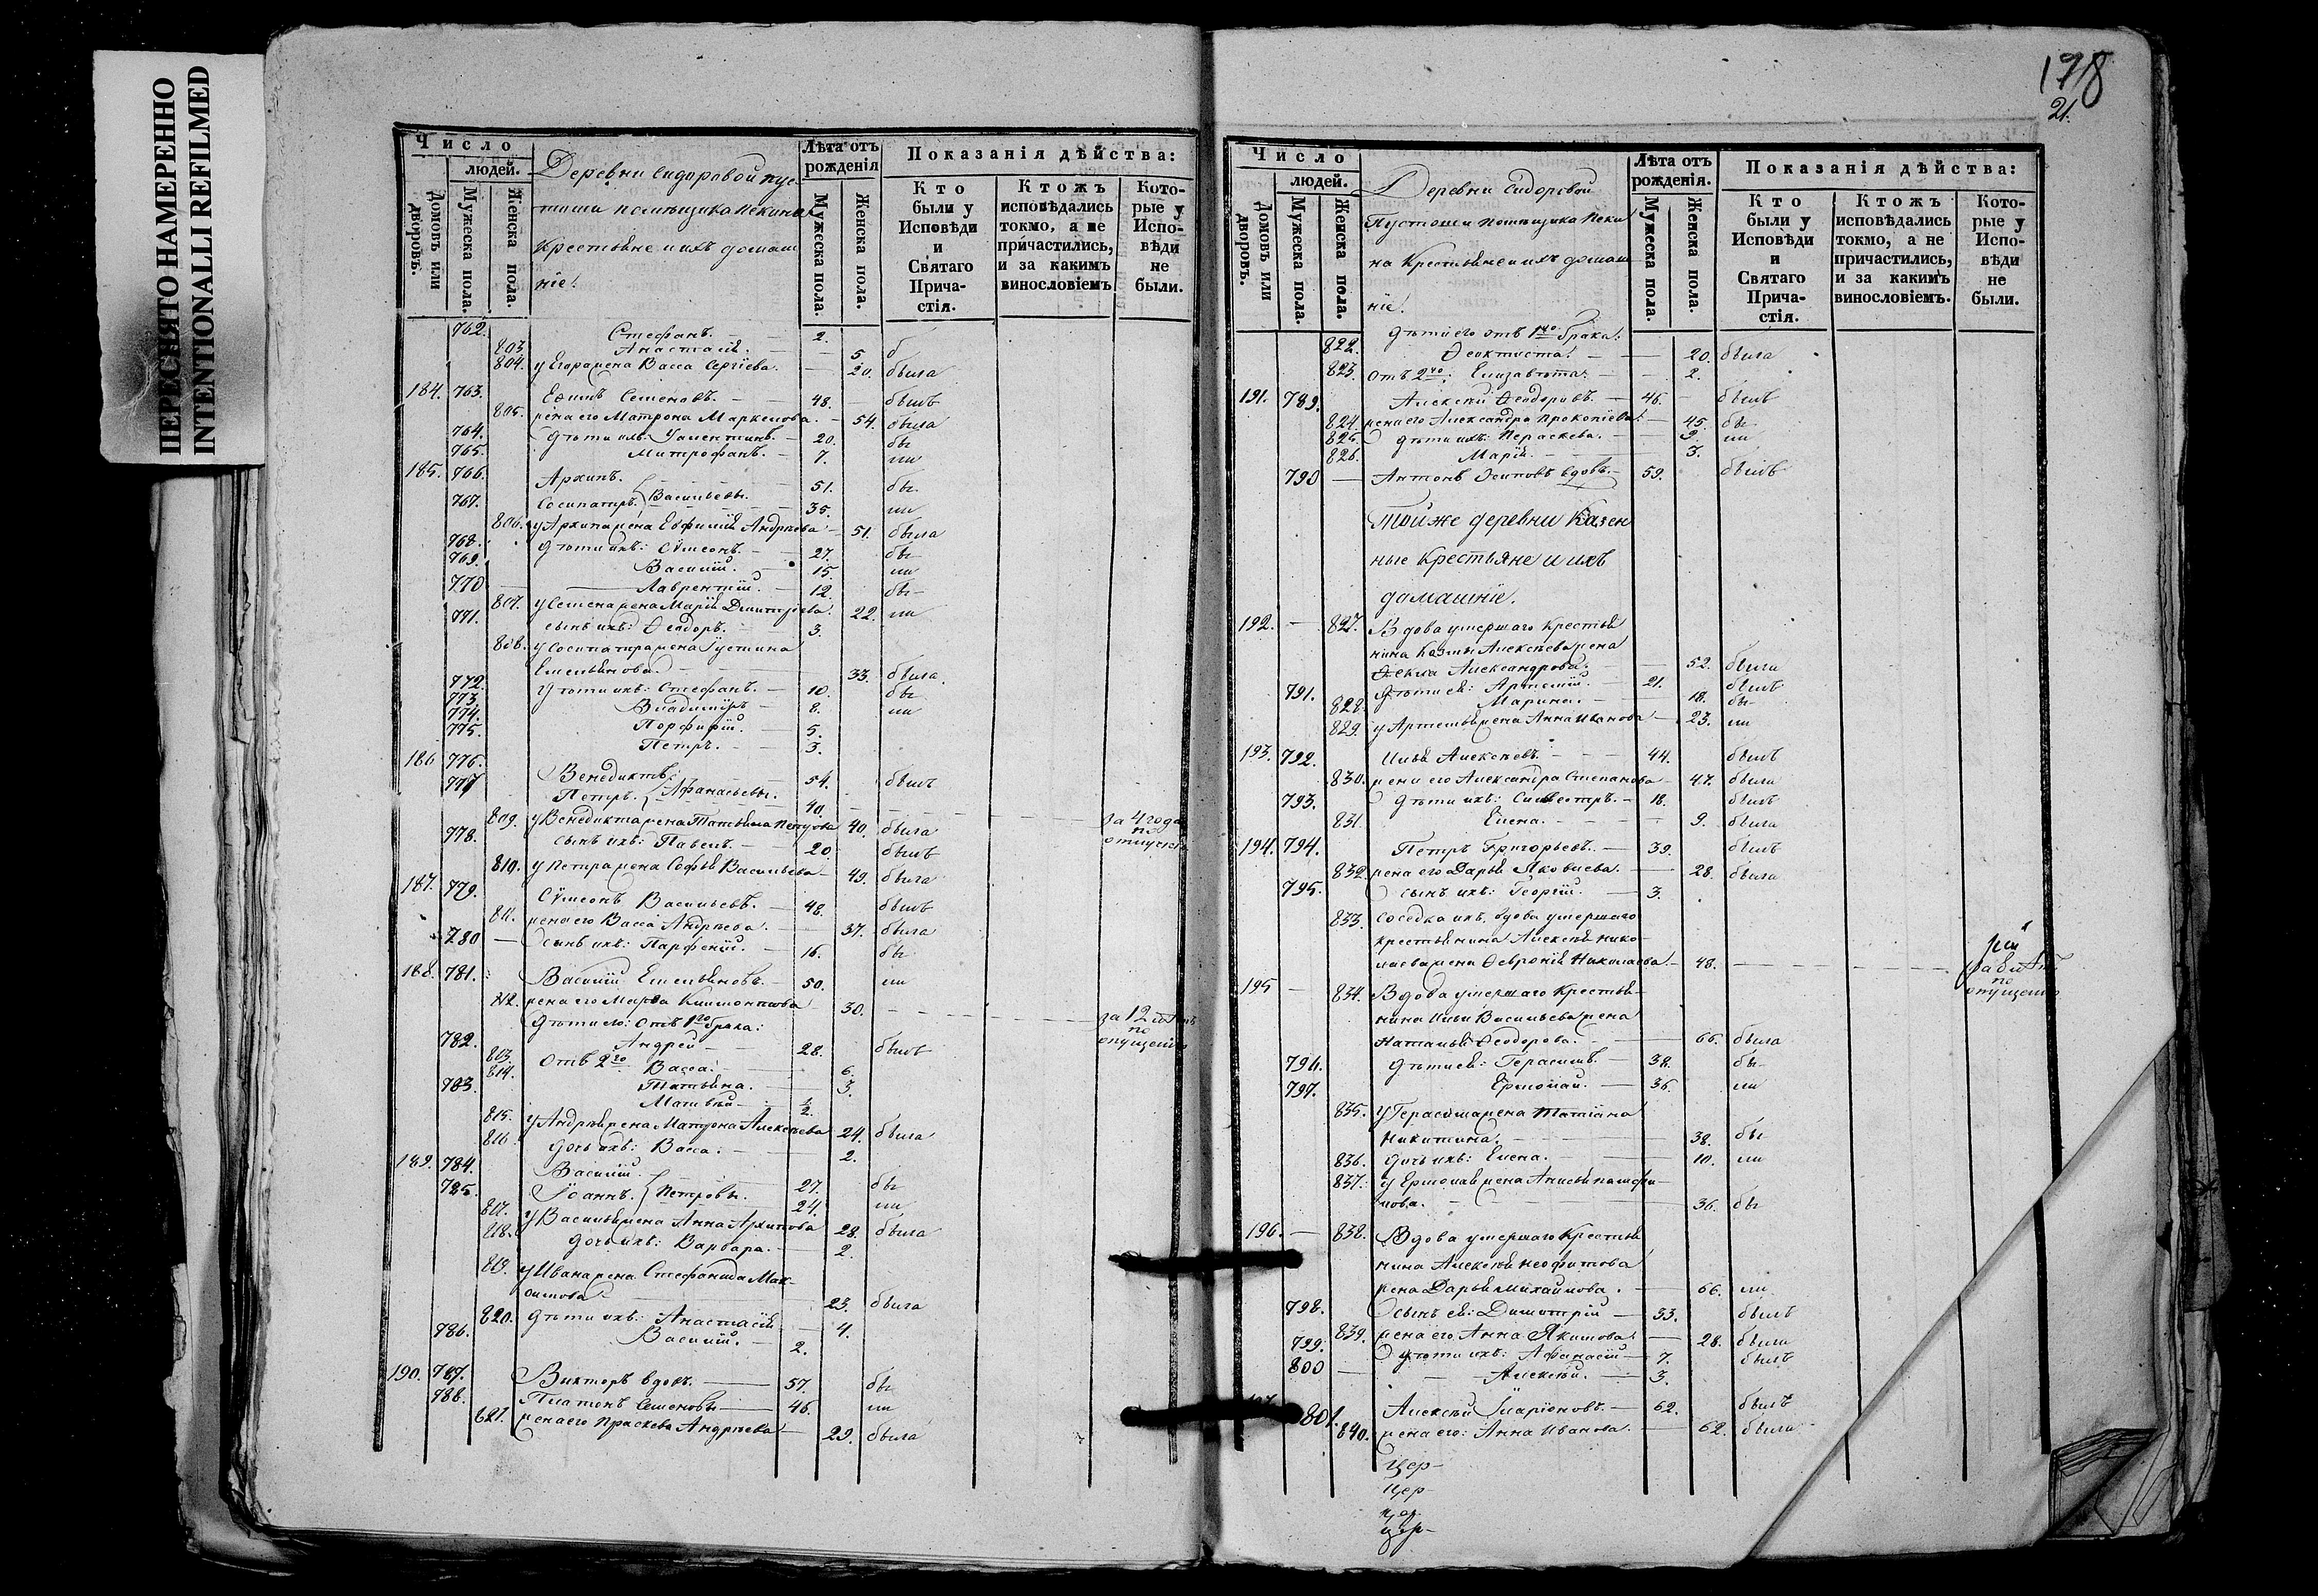 ПЕРЕСНЯТО НАМЕРЕННО
INTENTIONALLI REFILMED
Число
людей.
Домовъ или дворовъ.
Мужеска пола.
Женска пола.
Деревни Сидоровой пус
тоши помѣщика Пекина
Крестьяне и ихъ домаш
ніе.
Лѣта отъ рожденія
Мужеска пола.
Женска пола.
Показанія дѣйства:
Кто были у Исповѣди и Святаго Причастія.
Ктожъ исповѣдались токмо, а не причастились, и за какимъ винословіемъ
Которые у Исповѣди не были.
762. Стефанъ. 2.
803. Анастасія. 5 б
804. у Егора жена Васса Сергіева. 20. была
184. 763. Ефимъ Семеновъ. 48. былъ
805. жена его Матрона Маркелова. 54. была
764. дѣти ихъ: 20. бы
765. Митрофанъ. 7. ли
185. 766. Архипъ. 51. бы
767. Сосипатръ. Васильевы. 35. ли
806. у Архипа жена Евфимія Андрѣева 51. была
768. дѣти ихъ: Сѵмеонъ. 27. бы
769. Василій. 15. ли
770 Лаврентій. 12. бы
807. у Семена жена Марія Димитріева. 22. ли
771. сынъ ихъ: Ѳеодоръ. 3.
808. у Сосипатра жена Іустина
Емельянова. 33. была.
772. дѣти ихъ: Стефанъ. 10. бы
773. Владиміръ 8. ли
774. Порфирій. 5.
775. Петръ. 3.
186 776. Венедиктъ. 54. былъ
777 Петръ. Афанасьевы. 40.
809. у Венедикта жена Татьяна Петрова 40. была за 4 года по опущенію
778. сынъ ихъ: Павелъ. 20. былъ
810. у Петра жена Софья Васильева 49. была
187. 779. Сѵмеонъ Васильевъ. 48. былъ
811. жена его Васса Андрѣева. 37. была
780 сынъ ихъ: Парфеній. 16. бы
188. 781. Василій Емельяновъ. 50. ли
812. жена его Марѳа 30. за 12 лѣтъ по опущенію
дѣти его: Отъ 1го брака:
782. Андрей 28. былъ
813. Отъ 2го Васса. 6.
814. Татьяна. 3.
783. Матвѣй 1/2.
815. у Андрея жена Матрона Алексѣева 24. была
816. дочь ихъ: Васса. 2.
189. 784. Василій. 27. бы
785. Іоаннъ. Петровы. 24. ли
817. у Василья жена Анна Архипова 28. была
818. дочь ихъ: Варвара. 2.
819. у Ивана жена Стефанида Мак-
симова 23. была
820. дѣти ихъ: Анастасія 4.
786. Василій. 2.
190. 787. Викторъ вдовъ. 57. бы
788. Платонъ Семеновы 46. ли
821. жена его Праскева Андрѣева 29. была
178
21.
Число
людей.
Домовъ или дворовъ.
Мужеска пола.
Женска пола.
Деревни Сидоровой
Пустоши помѣщика Пеки
на Крестьяне и ихъ домаш
ніе.
Лѣта отъ рожденія.
Мужеска пола.
Женска пола.
Показанія дѣйства:
Кто были у Исповѣди и Святаго Причастія.
Ктожъ исповѣдались токмо, а не причастились, и за какимъ винословіемъ.
Которые у Исповѣди не были.
дѣти его отъ 1го брака:
822. Ѳеоктиста. 20. была
823. Отъ 2го: Елизавета. 2.
191. 789. Алексѣй Ѳеодоровъ. 46. былъ
824. жена его Александра Прокопіева. 45. бы
825. дѣти ихъ: Пераскева. 9. ли
826. Марія. 3.
790 Антонъ Осиповъ вдовъ. 59. былъ
Той же деревни Казен
ные Крестьяне и ихъ
домашніе.
192. 827. Вдова умершаго Крестья
нина Козмы Алексѣева жена
Ѳекла Александрова. 52. была
791. дѣти ея: Артемій. 21. былъ
828. Марина. 18. бы
829. у Артемья жена Анна Иванова 23. ли
193. 792. Илья Алексѣевъ. 44. былъ
830. жена его Александра Степанова 47. была
793. дѣти ихъ: Сильвестръ. 18. былъ
831. Елена. 9. была
194. 794. Петръ Григорьевъ. 39. былъ
832. жена его Дарья Яковлева. 28. была
795. сынъ ихъ: Георгій. 3.
833. соседка ихъ, вдова умершаго
крестьянина Алексѣя Нико-
лаева жена Ѳевронія Николаева. 48. по опущенію
195 834. Вдова умершаго Крестья-
нина Ильи Васильева жена
Наталья Ѳеодорова. 66. была
796. дѣти ея: Герасимъ. 38. бы
797. Ермолай. 36. ли
835. у Герасима жена Татіана
Никитина. 38. бы
836. дочь ихъ: Елена. 10. ли
837. у Ермолая жена Анисья Памфи-
лова. 36. бы
196. 838. Вдова умершаго Крестья
нина Алексѣя Неофитова
жена Дарья Михайлова. 66. ли
798. сынъ ея: Димитрій 33. былъ
839. жена его Анна Якимова. 28. была
799. дѣти ихъ: Афанасій 7. былъ
800 Алексѣй. 3.
801. Алексѣй Иларіоновъ. 62. былъ
840. жена его: Анна Иванова. 62. была
Цер-
Цер-
цер
цер-